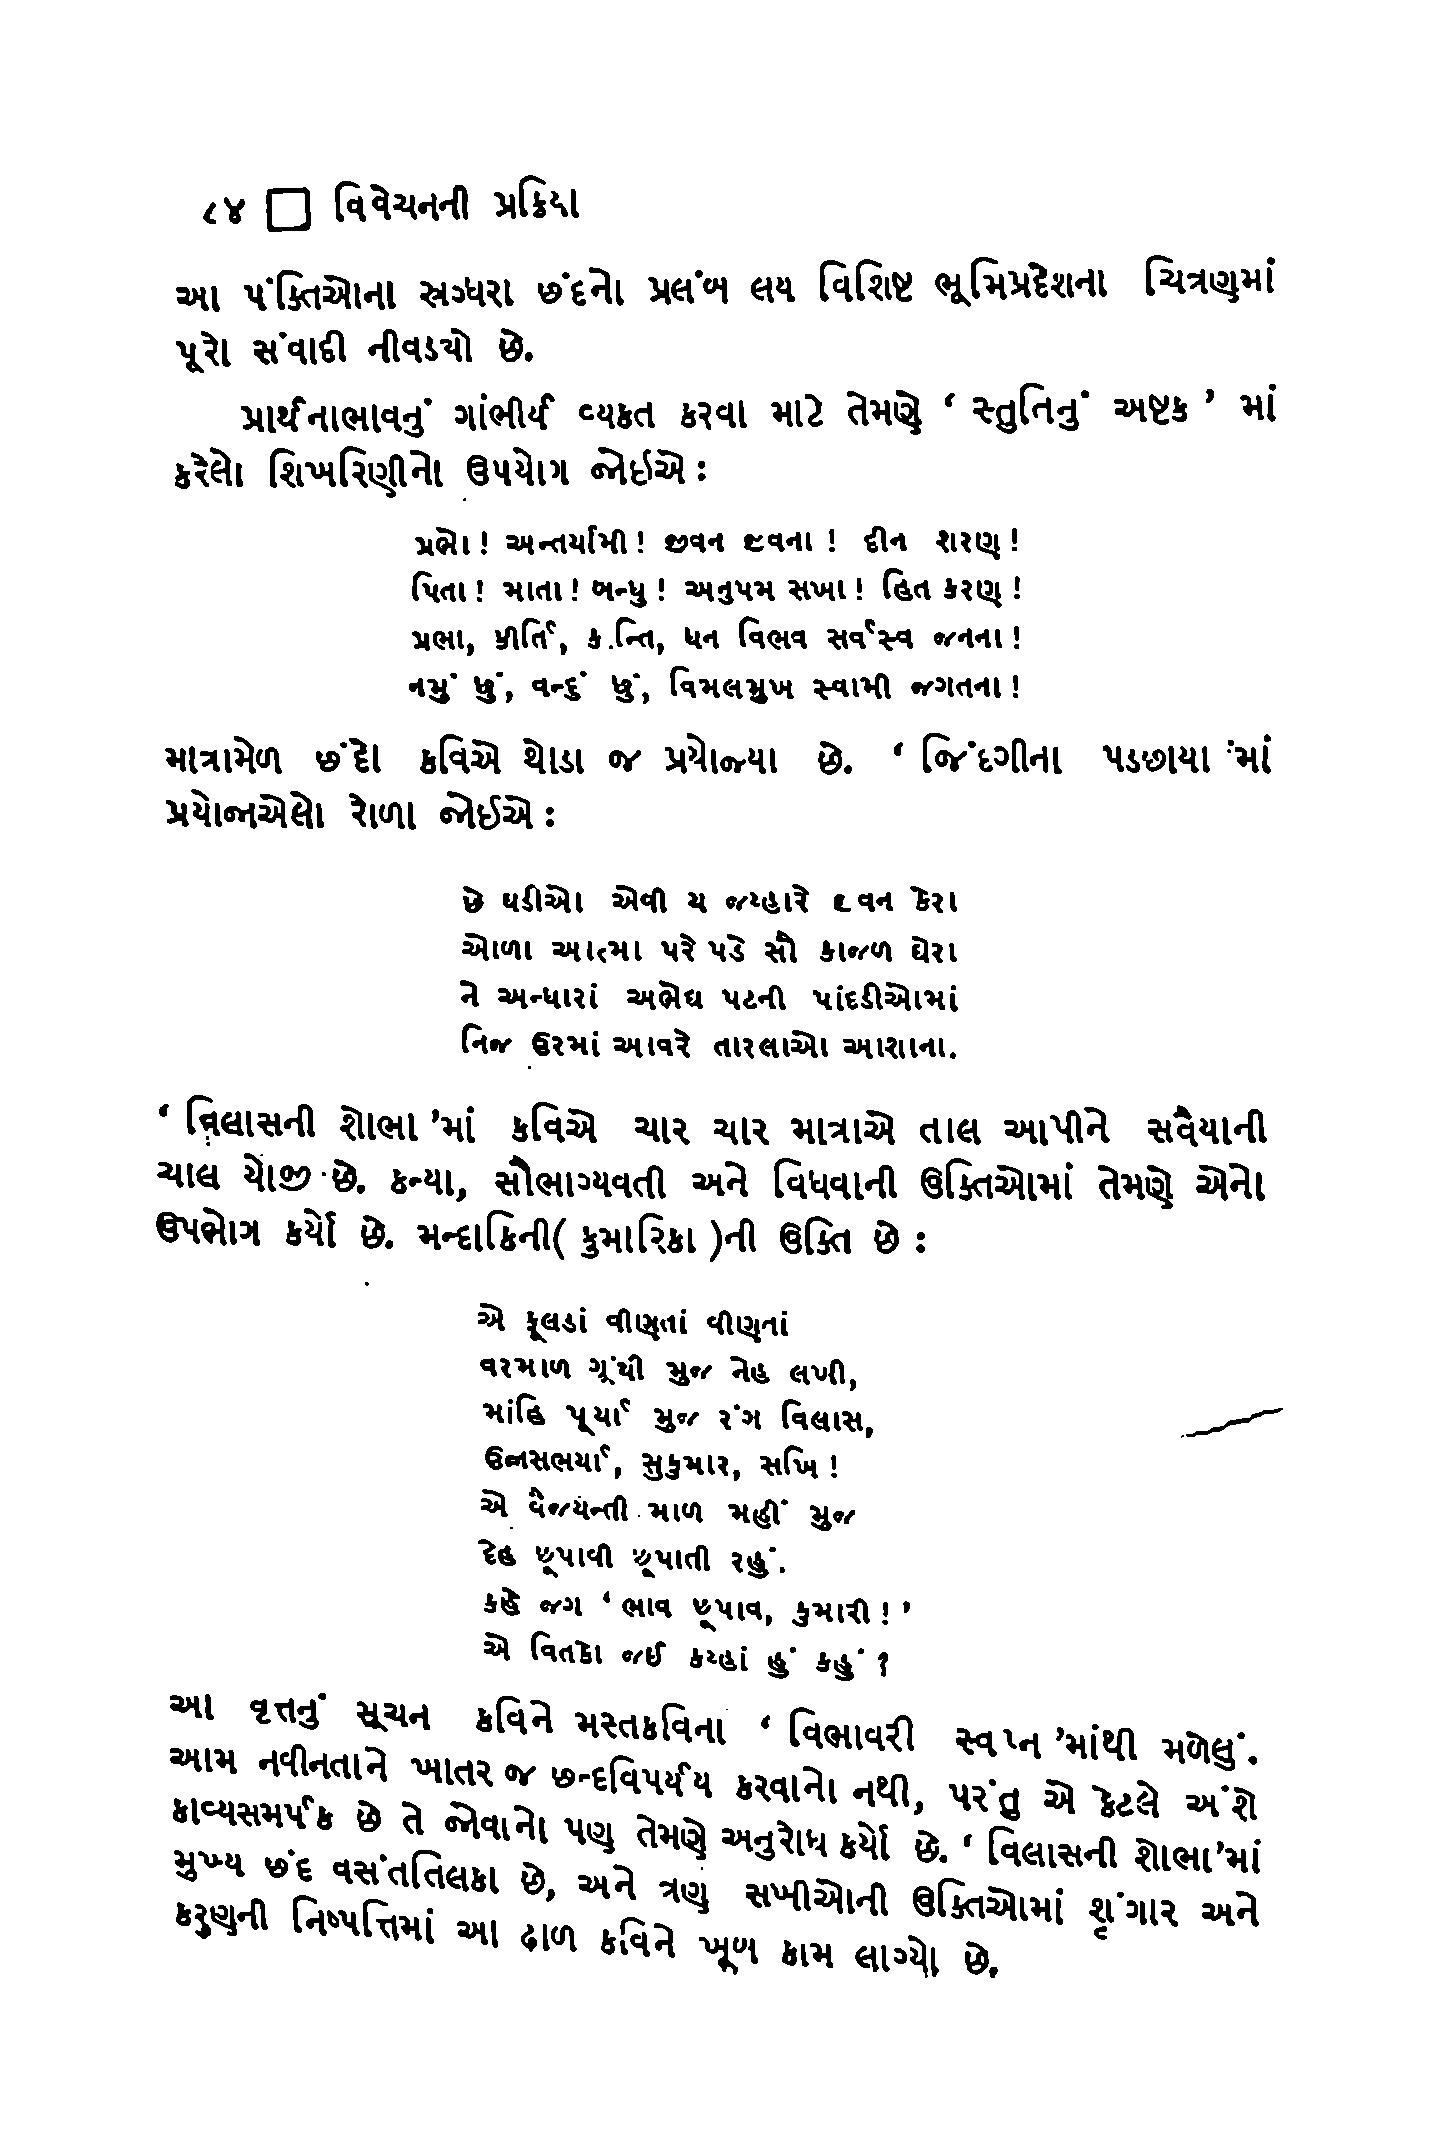 ૮૪ □ વિવેચનની પ્રક્રિયા
આ પંક્તિઓના સ્રગ્ધરા છંદનો પ્રલંબ લય વિશિષ્ટ ભૂમિપ્રદેશના ચિત્રણમાં
પૂરો સંવાદી નીવડ્યો છે.
પ્રાર્થનાભાવનું ગાંભીર્ય વ્યક્ત કરવા માટે તેમણે ‘ સ્તુતિનું અષ્ટક ’ માં
કરેલો શિખરિણીનો ઉપયોગ જોઇએ :
પ્રભો ! અન્તર્યામી ! જીવન જીવના ! દીન શરણ !
પિતા ! માતા ! બન્ધુ ! અનુપમ સખા ! હિત કરણ !
પ્રભા, કીર્તિ, કાન્તિ, ધન વિભવ સર્વસ્વ જનના !
નમું છું, વન્દું છું, વિમલમુખ સ્વામી જગતના !
માત્રામેળ છંદો કવિએ થોડા જ પ્રયોજ્યા છે. ‘ જિંદગીના પડછાયા ’માં
પ્રયોજાએલો રોળા જોઈએ :
છે ઘડીઓ એવી ય જ્ય્હારે દવન કેરા
ઓળા આત્મા પરે પડે સૌ કાજળ ઘેરા
ને અન્ધારાં અભેદ્ય પટની પાંદડીઓમાં
નિજ ઉરમાં આવરે તારલાઓ આશાના.
‘ વિલાસની શોભા ’માં કવિએ ચાર ચાર માત્રાએ તાલ આપીને સવૈયાની
ચાલ યોજી છે. કન્યા, સૌભાગ્યવતી અને વિધવાની ઉક્તિઓમાં તેમણે એનો
ઉપભોગ કર્યો છે. મન્દાકિની( કુમારિકા )ની ઉક્તિ છે :
એ ફૂલડાં વીણતાં વીણતાં
વરમાળ ગૂંથી મુજ નેહ લખી,
માંહિ પૂર્યા મુજ રંગ વિલાસ,
ઉલ્લાસભર્યા, સુકુમાર, સખિ !
એ વૈજયન્તી માળ મહીં મુજ
દેહ છૂપાવી છૂપાતી રહું.
કહે જગ ‘ ભાવ છૂપાવ, કુમારી ! ’
એ વિતકો જઈ ક્ય્હાં હું કહું ?
આ વૃત્તનું સૂચન કવિને મસ્તકવિના ‘ વિભાવરી સ્વપ્ન ’માંથી મળેલું.
આમ નવીનતાને ખાતર જ છન્દવિપર્યય કરવાનો નથી, પરંતુ એ કેટલે અંશે
કાવ્યસમર્પક છે તે જોવાનો પણ તેમણે અનુરોધ કર્યો છે. ‘ વિલાસની શોભા’માં
મુખ્ય છંદ વસંતતિલકા છે, અને ત્રણ સખીઓની ઉક્તિઓમાં શૃંગાર અને
કરુણની નિષ્પત્તિમાં આ ઢાળ કવિને ખૂબ કામ લાગ્યો છે.